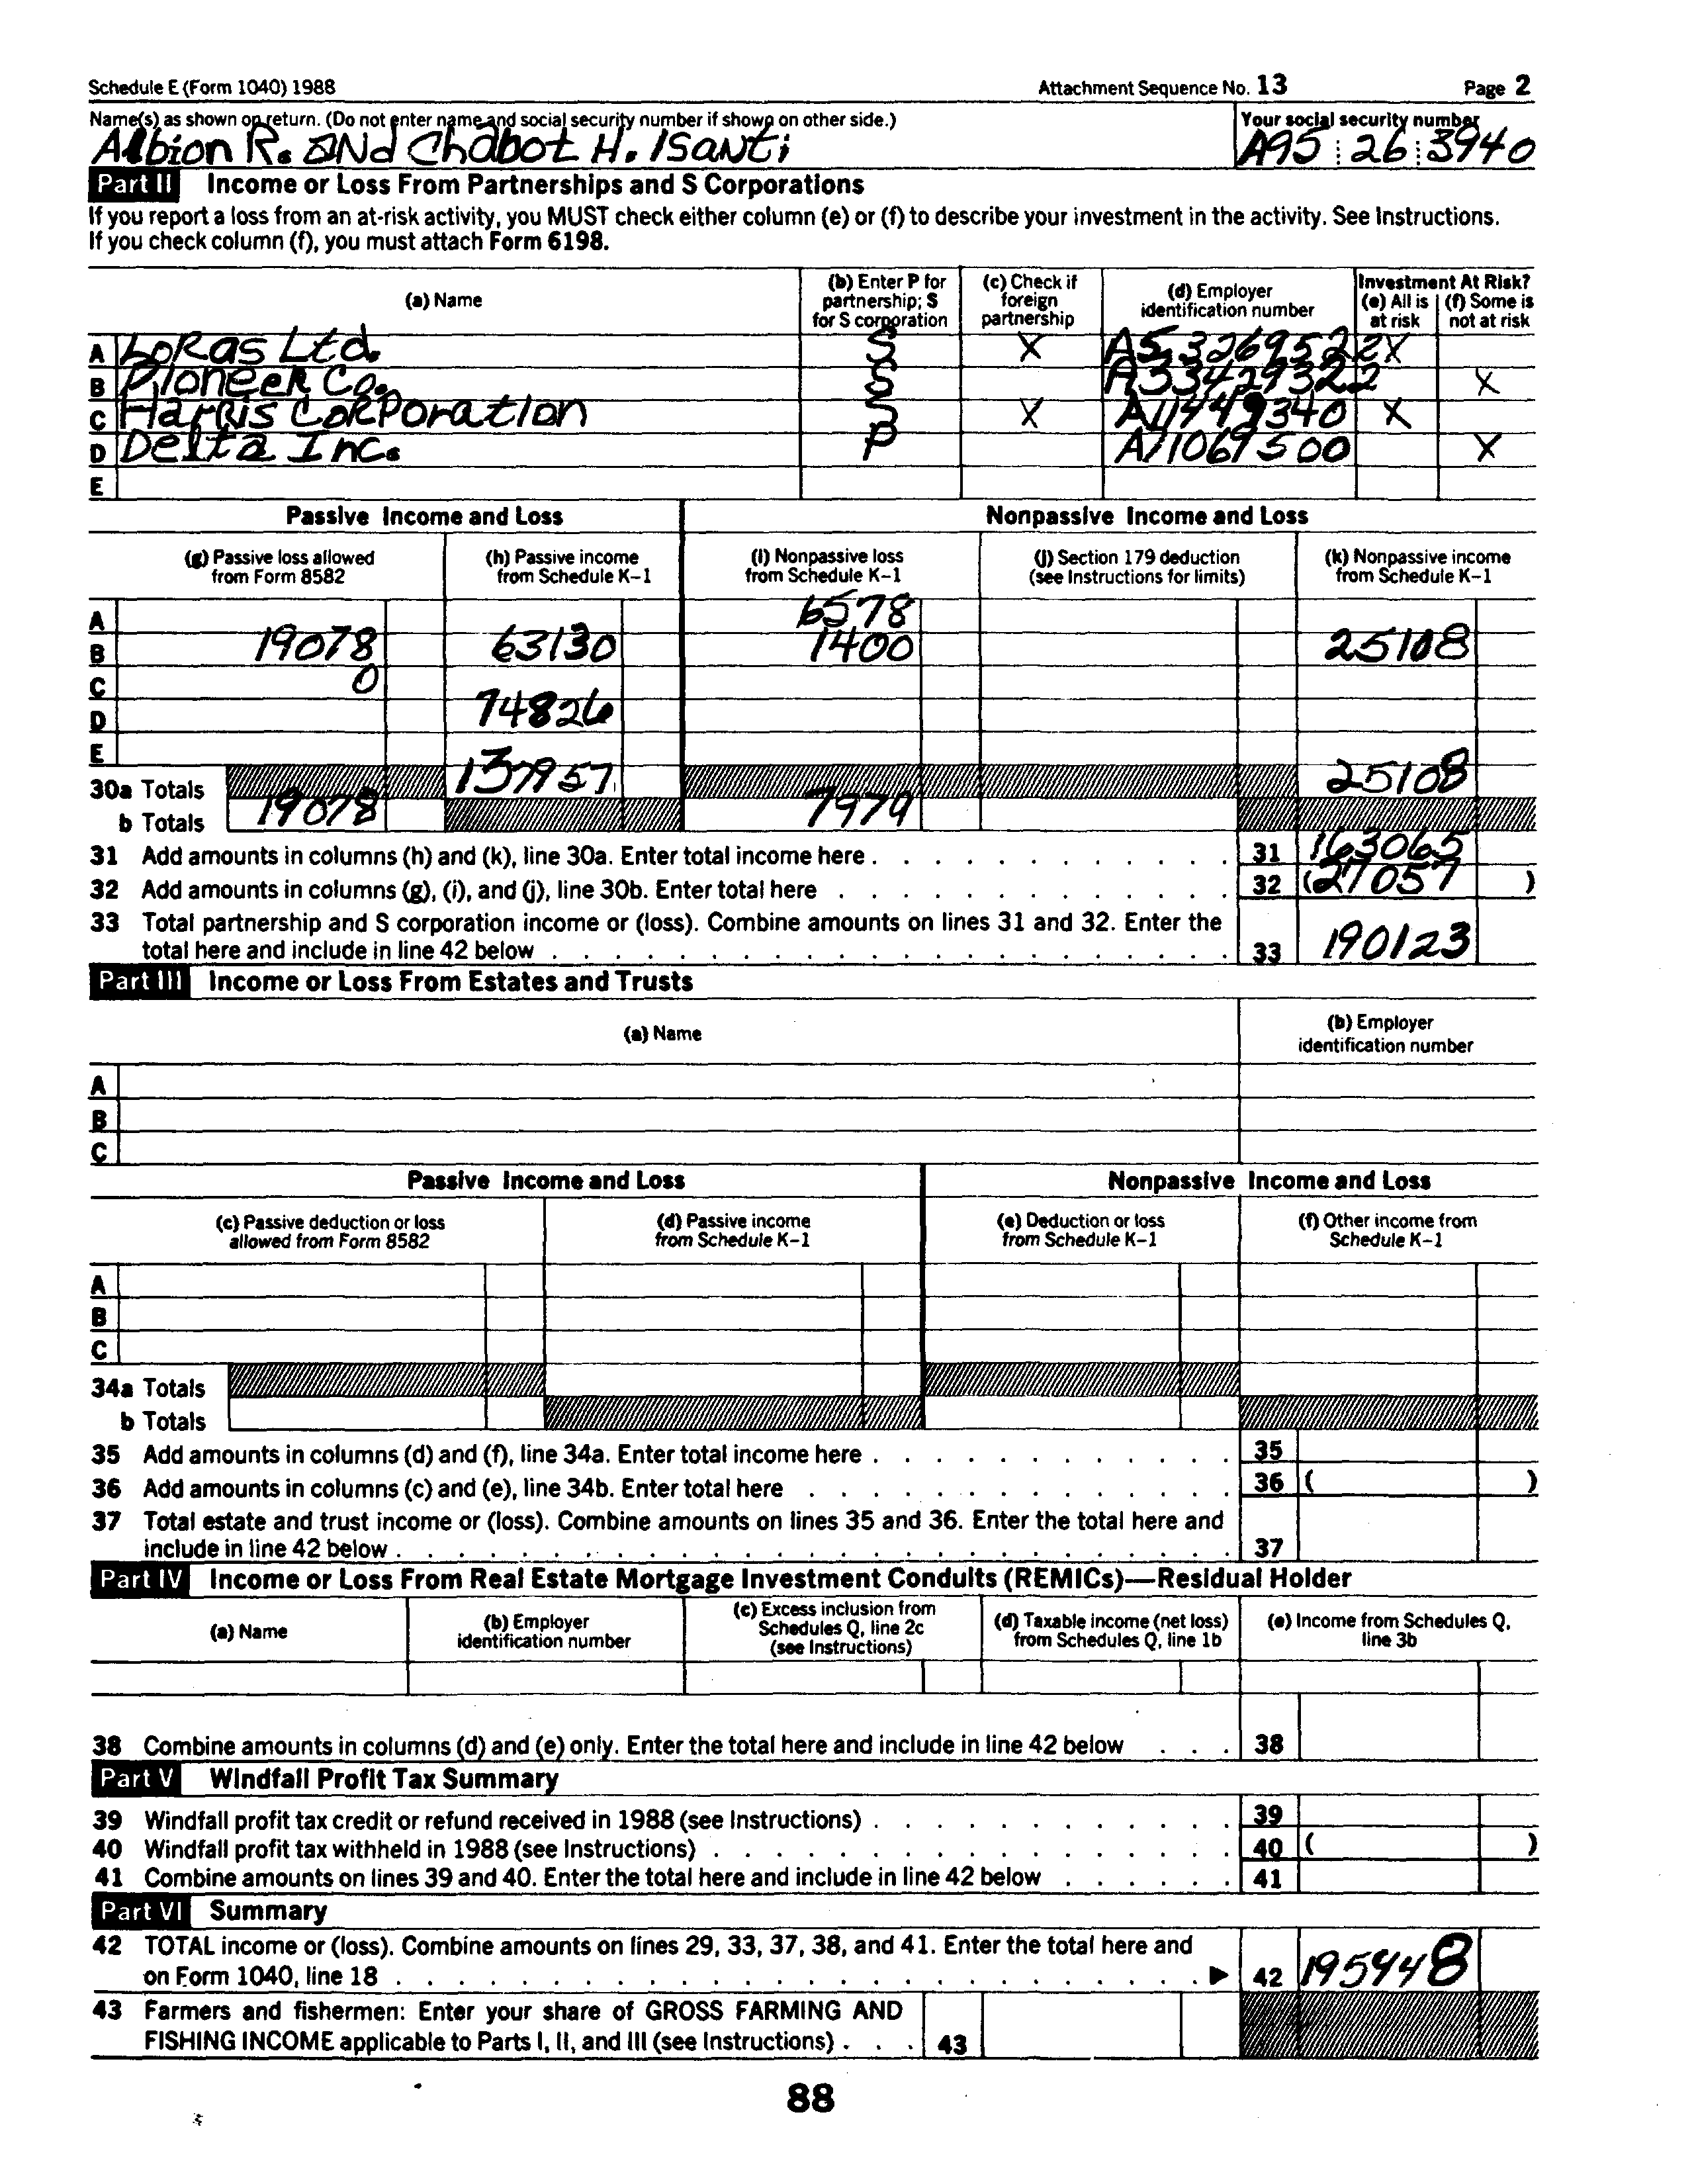 Schedule E (Form 1040) 1988 Attachment Sequence No. 13 Page 2
Name(s) as shown on return. (Do not enter name and social security number if shown on other side.) Your social security number
Albion R. and Chabot H. Isanti A95 26 3940
Part II Income or Loss From Partnerships and S Corporations
If you report a loss from an at-risk activity, you MUST check either column (e) or (f) to describe your investment in the activity. See Instructions.
If you check column (f), you must attach Form 6198.
(a) Name (b) Enter P for partnership; S for S corporation (c) Check if foreign partnership (d) Employer identification number Investment At Risk? (e) All is at risk (f) Some is not at risk
A Loras Ltd. S X A53269522 X
B Pioneer Co. S A33429322 X
C Harris Corporation S X A11449340 X
D Delta Inc. P A11069500 X
E
Passive Income and Loss Nonpassive Income and Loss
(g) Passive loss allowed from Form 8582 (h) Passive income from Schedule K-1 (i) Nonpassive loss from Schedule K-1 (j) Section 179 deduction (see Instructions for limits) (k) Nonpassive income from Schedule K-1
A 6578
B 19078 63130 1400 25108
C 0
D 74826
E
30a Totals 137957 25108
b Totals 19078 7979
31 Add amounts in columns (h) and (k), line 30a. Enter total income here 31 163065
32 Add amounts in columns (g), (i), and (j), line 30b. Enter total here 32 (27057)
33 Total partnership and S corporation income or (loss). Combine amounts on lines 31 and 32. Enter the
total here and include in line 42 below 33 190123
Part III Income or Loss From Estates and Trusts
(a) Name (b) Employer identification number
A
B
C
Passive Income and Loss Nonpassive Income and Loss
(c) Passive deduction or loss allowed from Form 8582 (d) Passive income from Schedule K-1 (e) Deduction or loss from Schedule K-1 (f) Other income from Schedule K-1
A
B
C
34a Totals
b Totals
35 Add amounts in columns (d) and (f), line 34a. Enter total income here 35
36 Add amounts in columns (c) and (e), line 34b. Enter total here 36 ( )
37 Total estate and trust income or (loss). Combine amounts on lines 35 and 36. Enter the total here and
include in line 42 below 37
Part IV Income or Loss From Real Estate Mortgage Investment Conduits (REMICs)—Residual Holder
(a) Name (b) Employer identification number (c) Excess inclusion from Schedules Q, line 2c (see Instructions) (d) Taxable income (net loss) from Schedules Q, line 1b (e) Income from Schedules Q, line 3b
38 Combine amounts in columns (d) and (e) only. Enter the total here and include in line 42 below 38
Part V Windfall Profit Tax Summary
39 Windfall profit tax credit or refund received in 1988 (see Instructions) 39
40 Windfall profit tax withheld in 1988 (see Instructions) 40 ( )
41 Combine amounts on lines 39 and 40. Enter the total here and include in line 42 below 41
Part VI Summary
42 TOTAL income or (loss). Combine amounts on lines 29, 33, 37, 38, and 41. Enter the total here and
on Form 1040, line 18 ▶ 42 195448
43 Farmers and fishermen: Enter your share of GROSS FARMING AND
FISHING INCOME applicable to Parts I, II, and III (see Instructions) 43
88